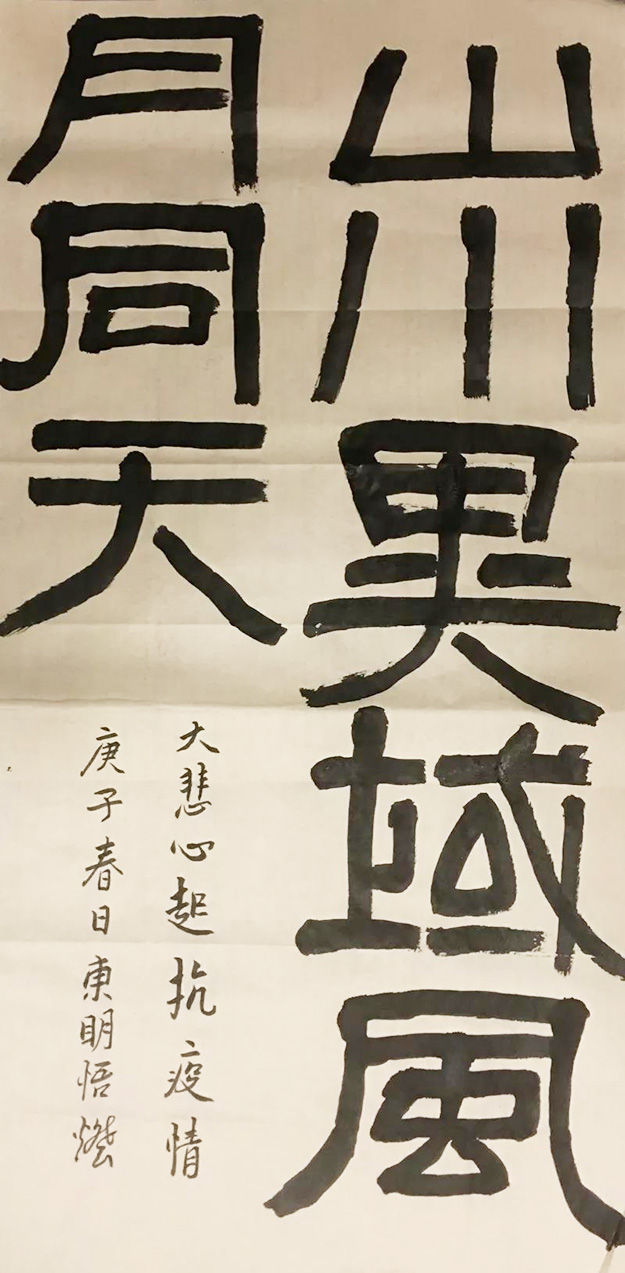 山川異域風
月同天
大悲心起抗疫情
庚子春日東明悟